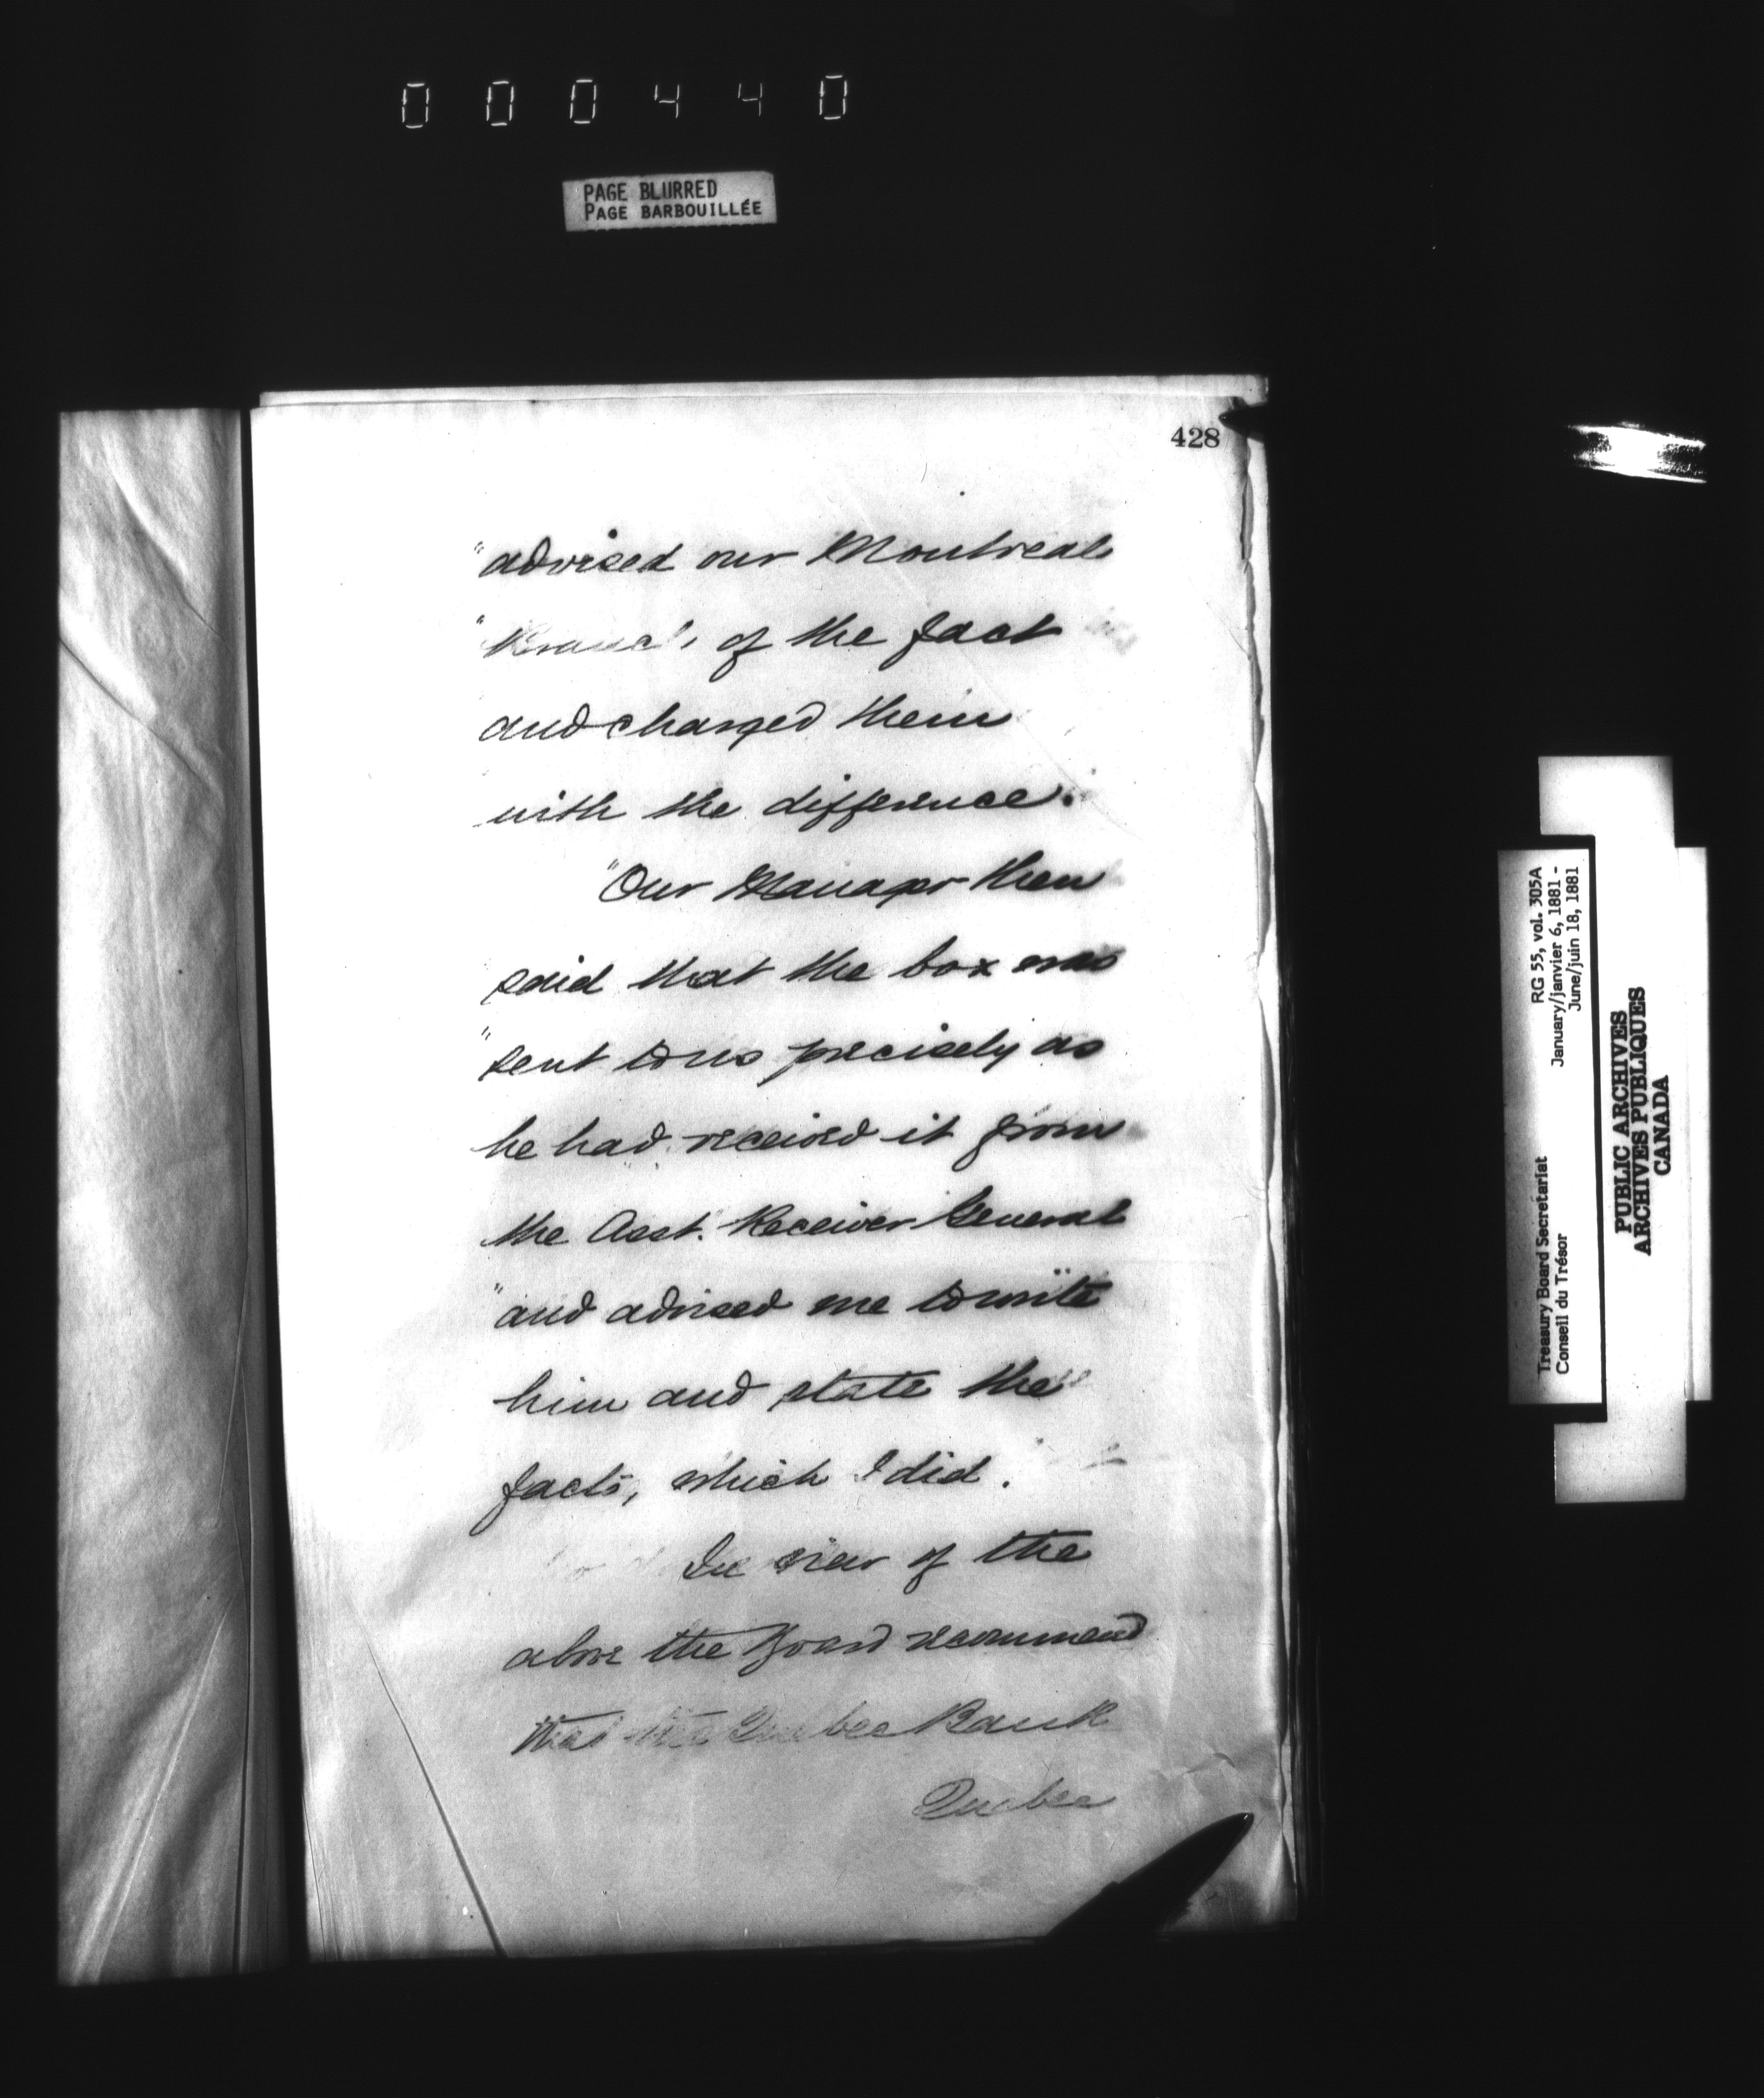 000440
PAGE BLURRED
PAGE BARBOUILLÉE
428
"advised our Montreal
"Branch of the fact
and charged them
with the difference.
"Our Manager then
said that the box was
"sent to us precisely as
he had received it from
the Asst. Receiver General
"and advised me to write
him and state the
facts, which I did.
In view of the
above the Board recommend
that the Quebec Bank
Quebec
Treasury Board Secretariat RG 55, vol. 305A
Conseil du Trésor January/janvier 6, 1881 -
June/juin 18, 1881
PUBLIC ARCHIVES
ARCHIVES PUBLIQUES
CANADA